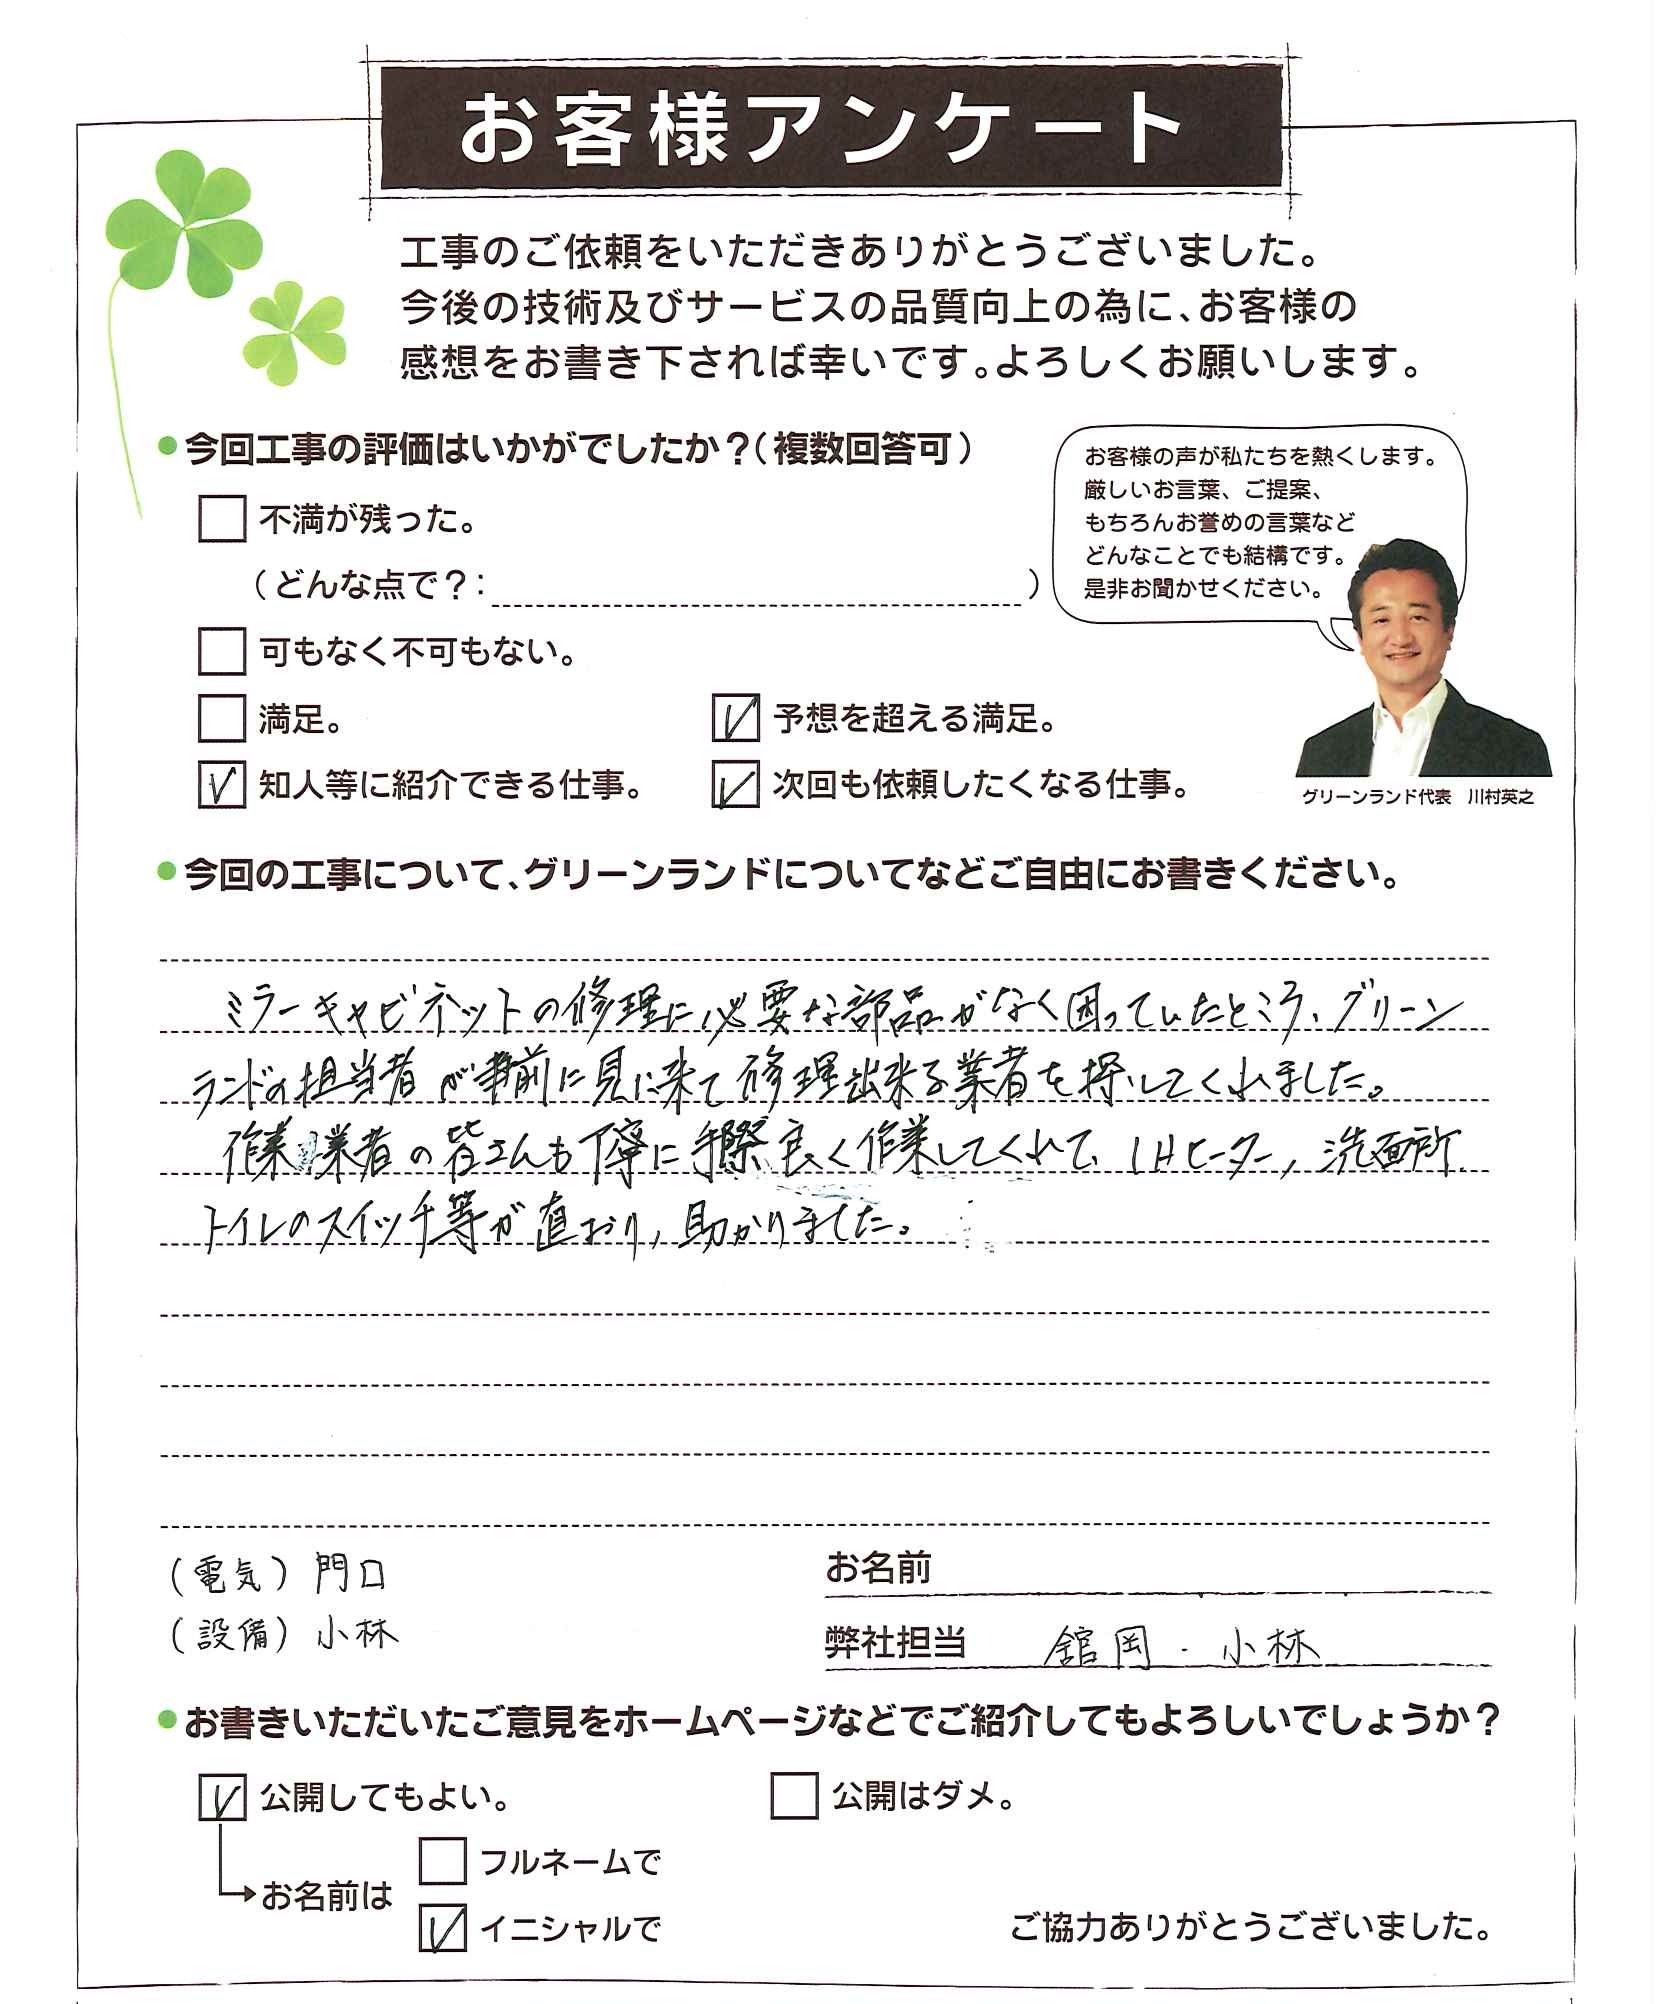 お客様アンケート
工事のご依頼をいただきありがとうございました。
今後の技術及びサービスの品質向上の為に、お客様の
感想をお書き下されば幸いです。よろしくお願いします。
●今回工事の評価はいかがでしたか？（複数回答可）
不満が残った。
（どんな点で？：　）
可もなく不可もない。
満足。
予想を超える満足。
知人等に紹介できる仕事。
次回も依頼したくなる仕事。
お客様の声が私たちを熱くします。
厳しいお言葉、ご提案、
もちろんお誉めの言葉など
どんなことでも結構です。
是非お聞かせください。
グリーンランド代表　川村英之
●今回の工事について、グリーンランドについてなどご自由にお書きください。
ミラーキャビネットの修理に必要な部品がなく困っていたところ、グリーン
ランドの担当者が事前に見に来て修理出来る業者を探してくれました。
作業業者の皆さんも丁寧に手際良く作業してくれて、IHヒーター, 洗面所
トイレのスイッチ等が直おり, 助かりました。
（電気）門口
（設備）小林
お名前
弊社担当　舘岡・小林
●お書きいただいたご意見をホームページなどでご紹介してもよろしいでしょうか？
公開してもよい。
公開はダメ。
お名前は
フルネームで
イニシャルで
ご協力ありがとうございました。